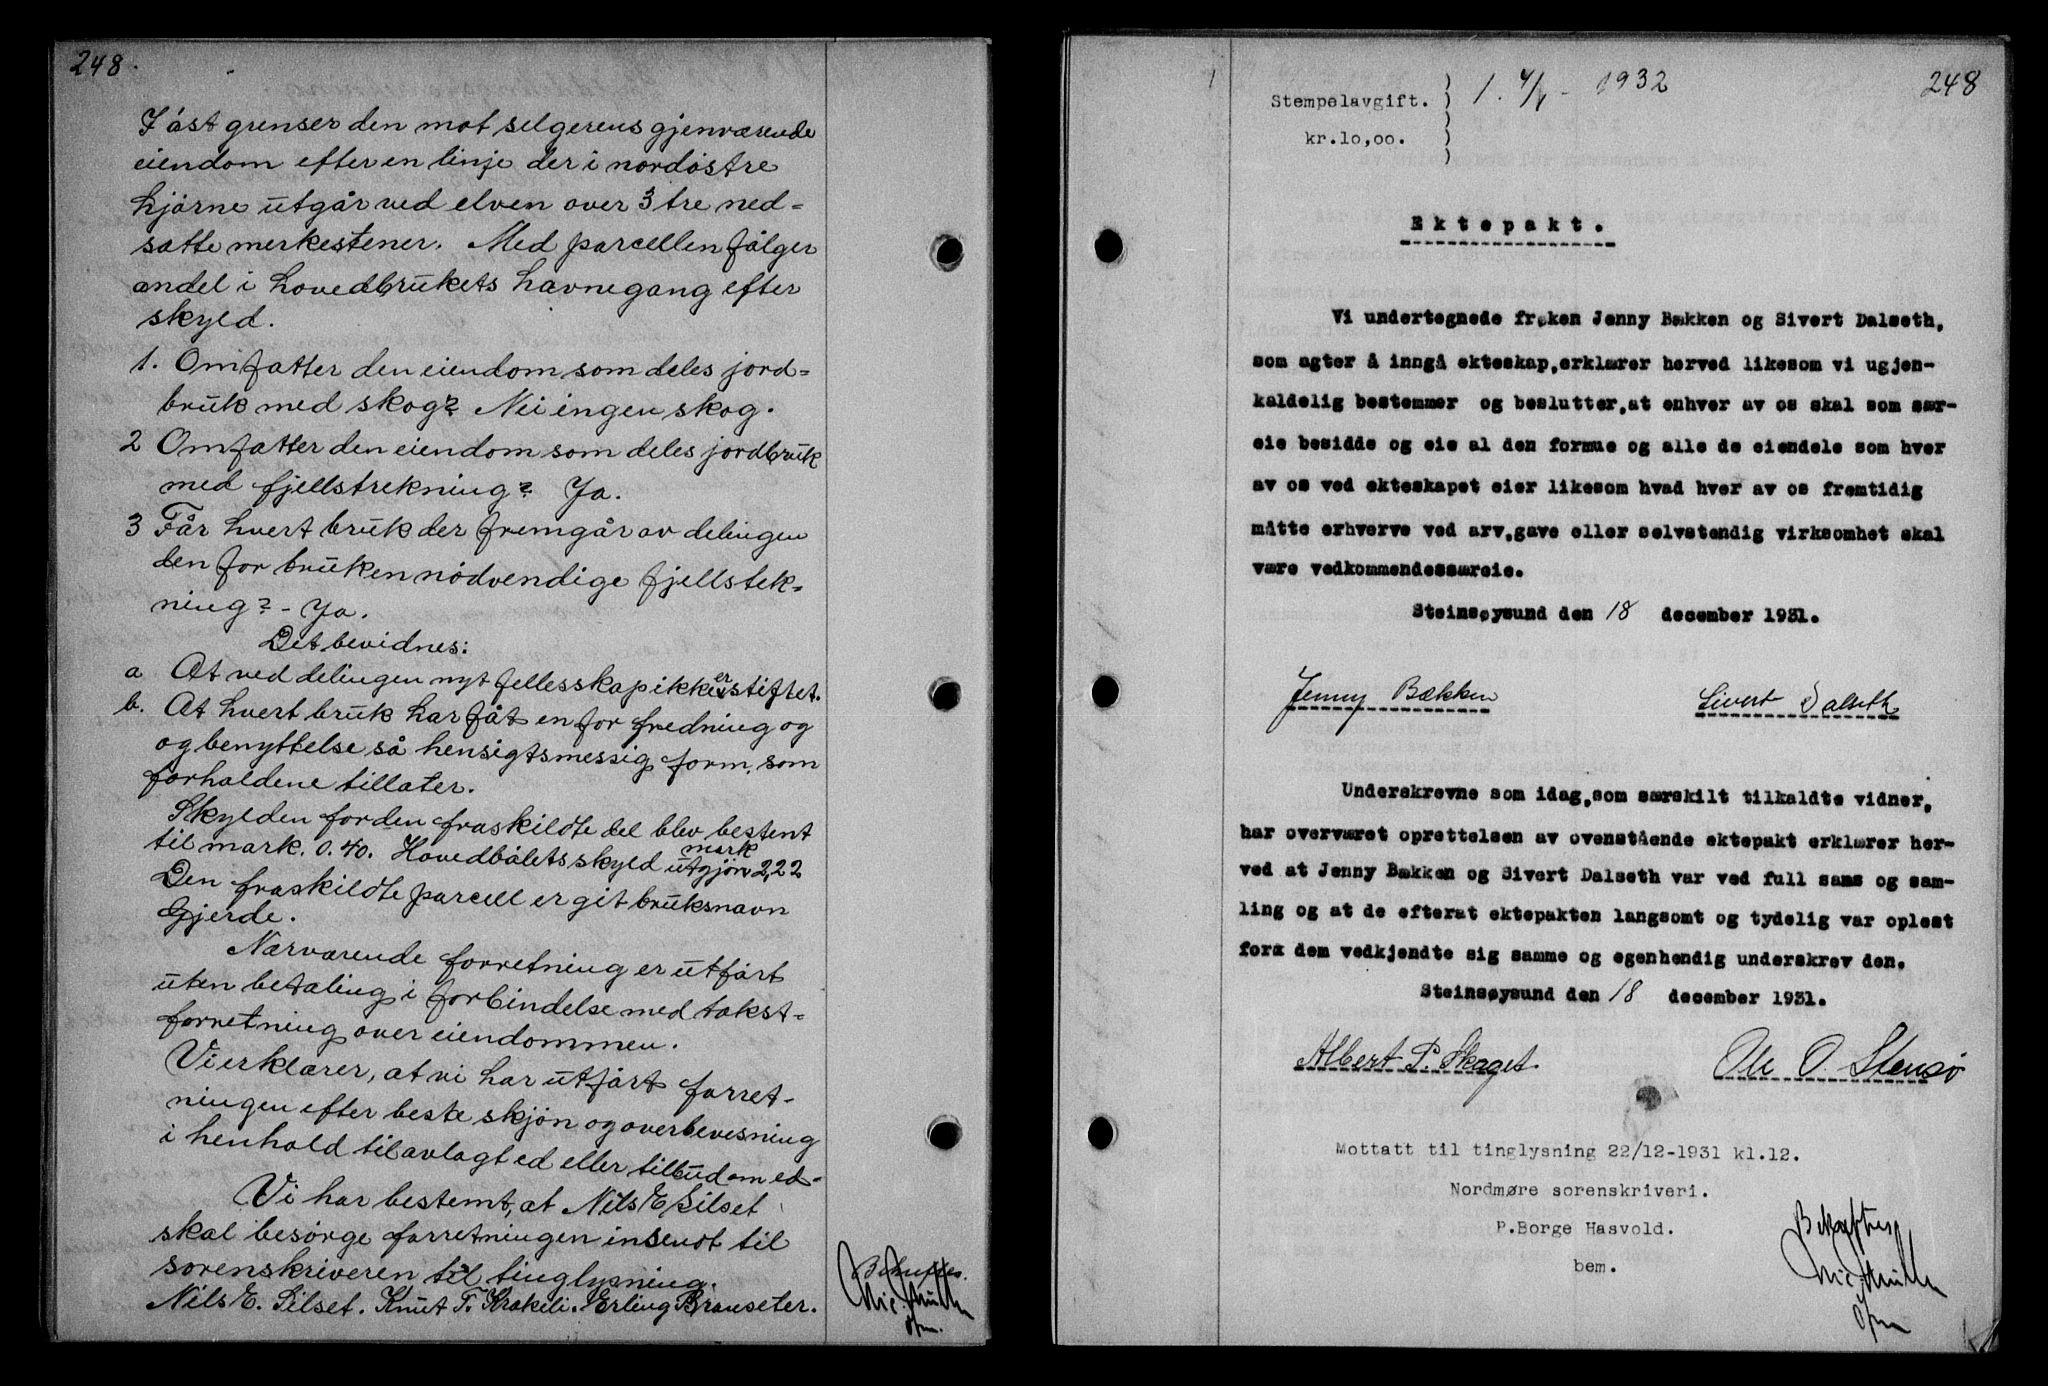 248.
I øst grenser den mot selgerens gjenværende
eiendom efter en linje der i nordøstre
hjørne utgår ved elven over 3 tre ned=
satte merkestener. Med parcellen følger
andel i hovedbrukets havnegang efter
skyld.
1. Omfatter den eiendom som deles jord=
bruk med skog? Nei ingen skog.
2 Omfatter den eiendom som deles jordbruk
med fjellstrekning? Ja.
3 Får hvert bruk der fremgår av delingen
den for bruken nødvendige fjellstek=
ning? - Ja.
Det bevidnes:
a At ved delingen nyt fellesskap ikke er stiftet.
b. At hvert bruk har fåt en for fredning og
og benyttelse så hensigtsmessig form, som
forholdene tillater.
Skylden for den fraskildte del blev bestent
til mark. 0.40. Hovedbølets skyld utgjør mark 2,22
Den fraskildte parcell er git bruksnavn
Gjerde.
Nærværende forretning er utført
uten betaling i forbindelse med takst=
forretning over eiendommen.
Vi erklærer, at vi har utført forret-
ningen efter beste skjøn og overbevisning
i henhold til avlagt ed eller tilbud om ed.
Vi har bestemt, at Nils E Silset
skal besørge forretningen insendt til
sorenskriveren til tinglysning.
Nils E. Silset. Knut T. Krakeli. Erling Bronseter.
248
Stempelavgift.
kr.10,00.
1. 4/1 - 1932
Ektepakt.
Vi undertegnede frøken Jenny Bækken og Sivert Dalseth,
som agter å inngå ekteskap,erklærer herved likesom vi ugjen-
kaldelig bestemmer og beslutter,at enhver av os skal som sær-
eie besidde og eie al den formue og alle de eiendele som hver
av os ved ekteskapet eier likesom hvad hver av os fremtidig
måtte erhverve ved arv,gave eller selvstendig virksomhet skal
være vedkommendessæreie.
Steinsøysund den 18 december 1931.
Jenny Bækken Sivert Dalseth
Underskrevne som idag,som særskilt tilkaldte vidner,
har overværet oprettelsen av ovenstående ektepakt erklærer her-
ved at Jenny Bækken og Sivert Dalseth var ved full sans og sam-
ling og at de efterat ektepakten langsomt og tydelig var oplest
forx dem vedkjendte sig samme og egenhendig underskrev den.
Steinsøysund den 18 december 1931.
Albert P. Skaget. Ole O. Stensø
Mottatt til tinglysning 22/12-1931 kl.12.
Nordmøre sorenskriveri.
P.Borge Hasvold.
bem.